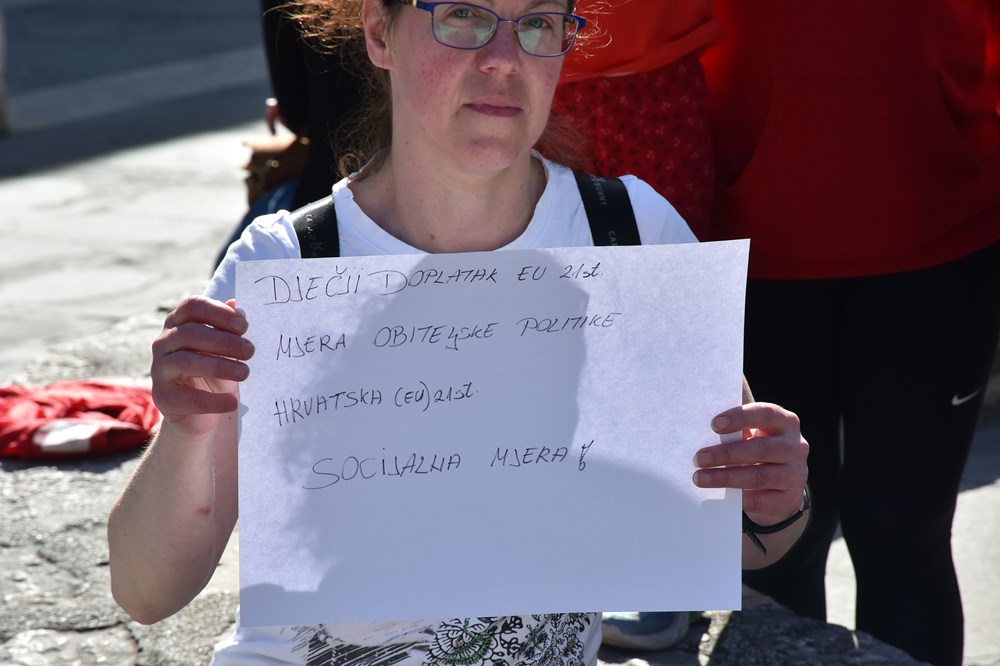 DJEČJI DOPLATAK EU 21st.
MJERA OBITELJSKE POLITIKE
HRVATSKA (EU) 21st.
SOCIJALNA MJERA